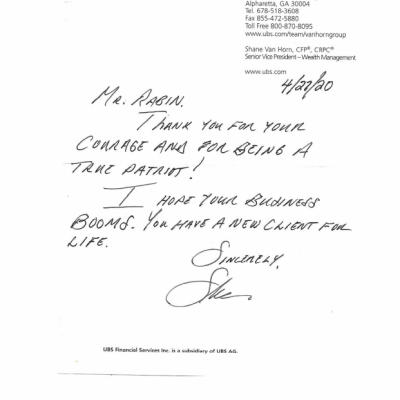 Alpharetta, GA 30004
Tel. 678-518-3608
Fax 855-472-5880
Toll Free 800-870-8095
www.ubs.com/team/vanhorngroup
Shane Van Horn, CFP®, CRPC®
Senior Vice President – Wealth Management
www.ubs.com
4/27/20
MR. RABIN.
THANK YOU FOR YOUR
COURAGE AND FOR BEING A
TRUE PATRIOT!
I HOPE YOUR BUSINESS
BOOMS. YOU HAVE A NEW CLIENT FOR
LIFE.
SINCERELY,
Shane
UBS Financial Services Inc. is a subsidiary of UBS AG.